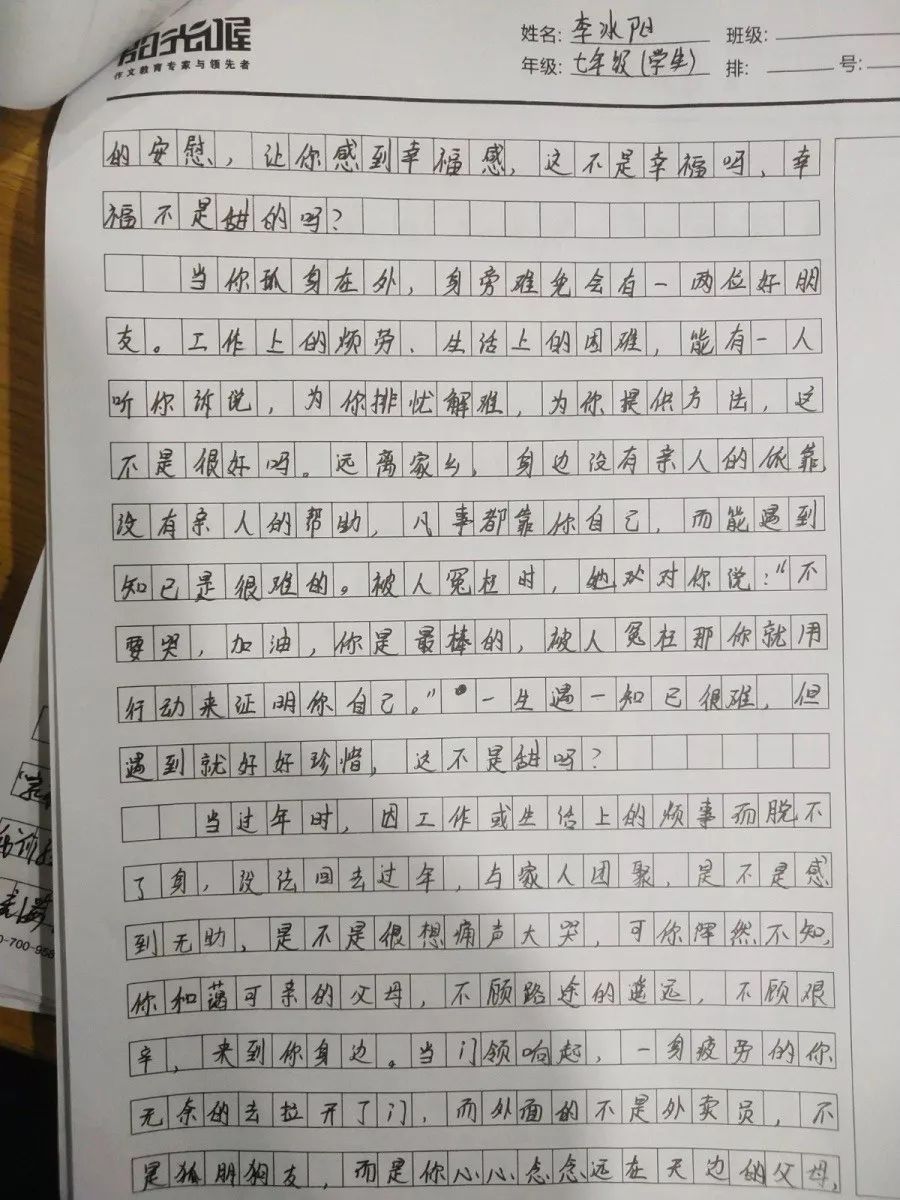 阳光喔
作文教育专家与领先者
姓名: 李冰阳 班级:
年级: 七年级(学生) 排: 号:
的安慰，让你感到幸福感，这不是幸福吗、幸
福不是甜的吗？
当你孤身在外，身旁难免会有一两位好朋
友。工作上的烦劳、生活上的困难，能有一人
听你诉说，为你排忧解难，为你提供方法，这
不是很好吗。远离家乡，身边没有亲人的依靠，
没有亲人的帮助，凡事都靠你自己，而能遇到
知己是很难的。被人冤枉时，她对你说："不
要哭，加油，你是最棒的，被人冤枉那你就用
行动来证明你自己。"一生遇一知己很难，但
遇到就好好珍惜，这不是甜吗？
当过年时，因工作或生活上的烦事而脱不
了身，没法回去过年，与家人团聚，是不是感
到无助，是不是很想痛声大哭，可你浑然不知，
你和蔼可亲的父母，不顾路途的遥远，不顾艰
辛，来到你身边。当门领响起，一身疲劳的你
无奈的去拉开了门，而外面的不是外卖员，不
是狐朋狗友，而是你心心念念远在天边的父母，